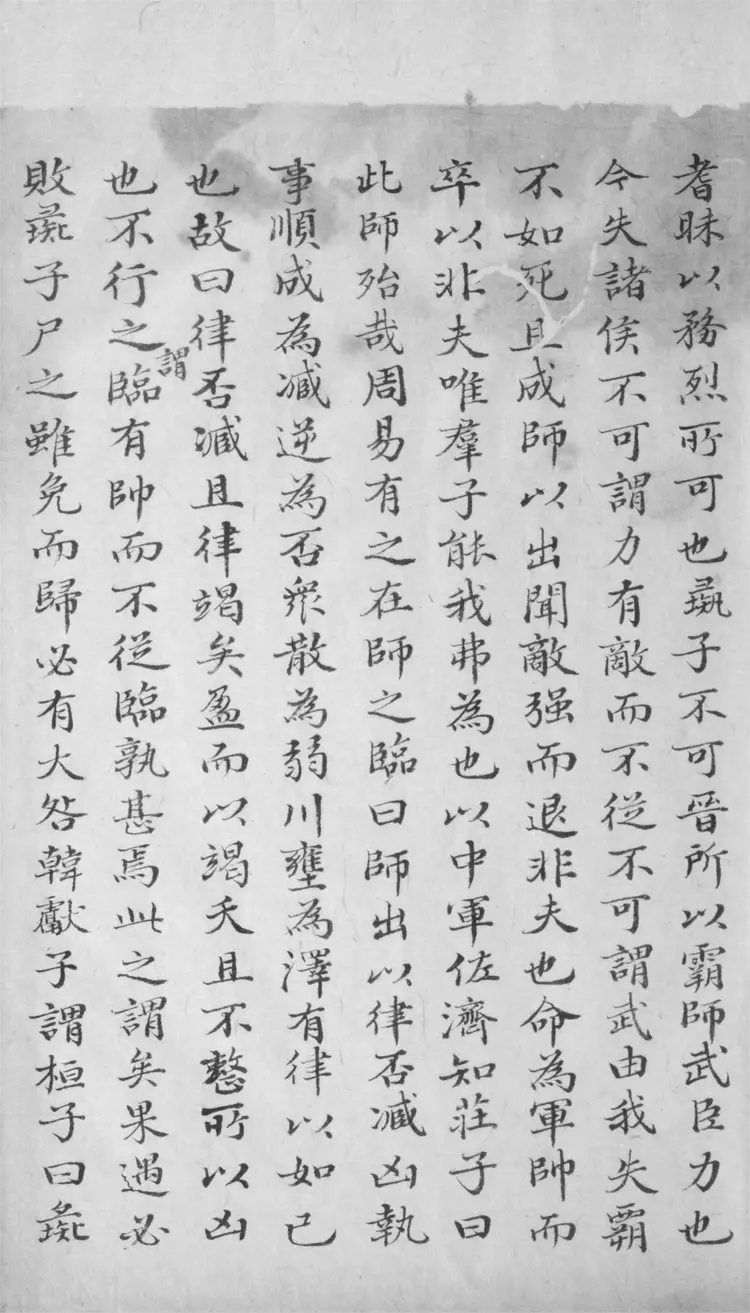 耆昧以務烈所可也彘子不可晉所以霸師武臣力也
今失諸侯不可謂力有敵而不從不可謂武由我失霸
不如死且成師以出聞敵强而退非夫也命為軍帥而
卒以非夫唯羣子能我弗為也以中軍佐濟知莊子曰
此師殆哉周易有之在師之臨曰師出以律否臧凶執
事順成為臧逆為否衆散為弱川壅為澤有律以如己
也故曰律否臧且律竭矣盈而以竭夭且不整所以凶
也不行之謂臨有帥而不從臨孰甚焉此之謂矣果遇必
敗彘子尸之雖免而歸必有大咎韓獻子謂桓子曰彘